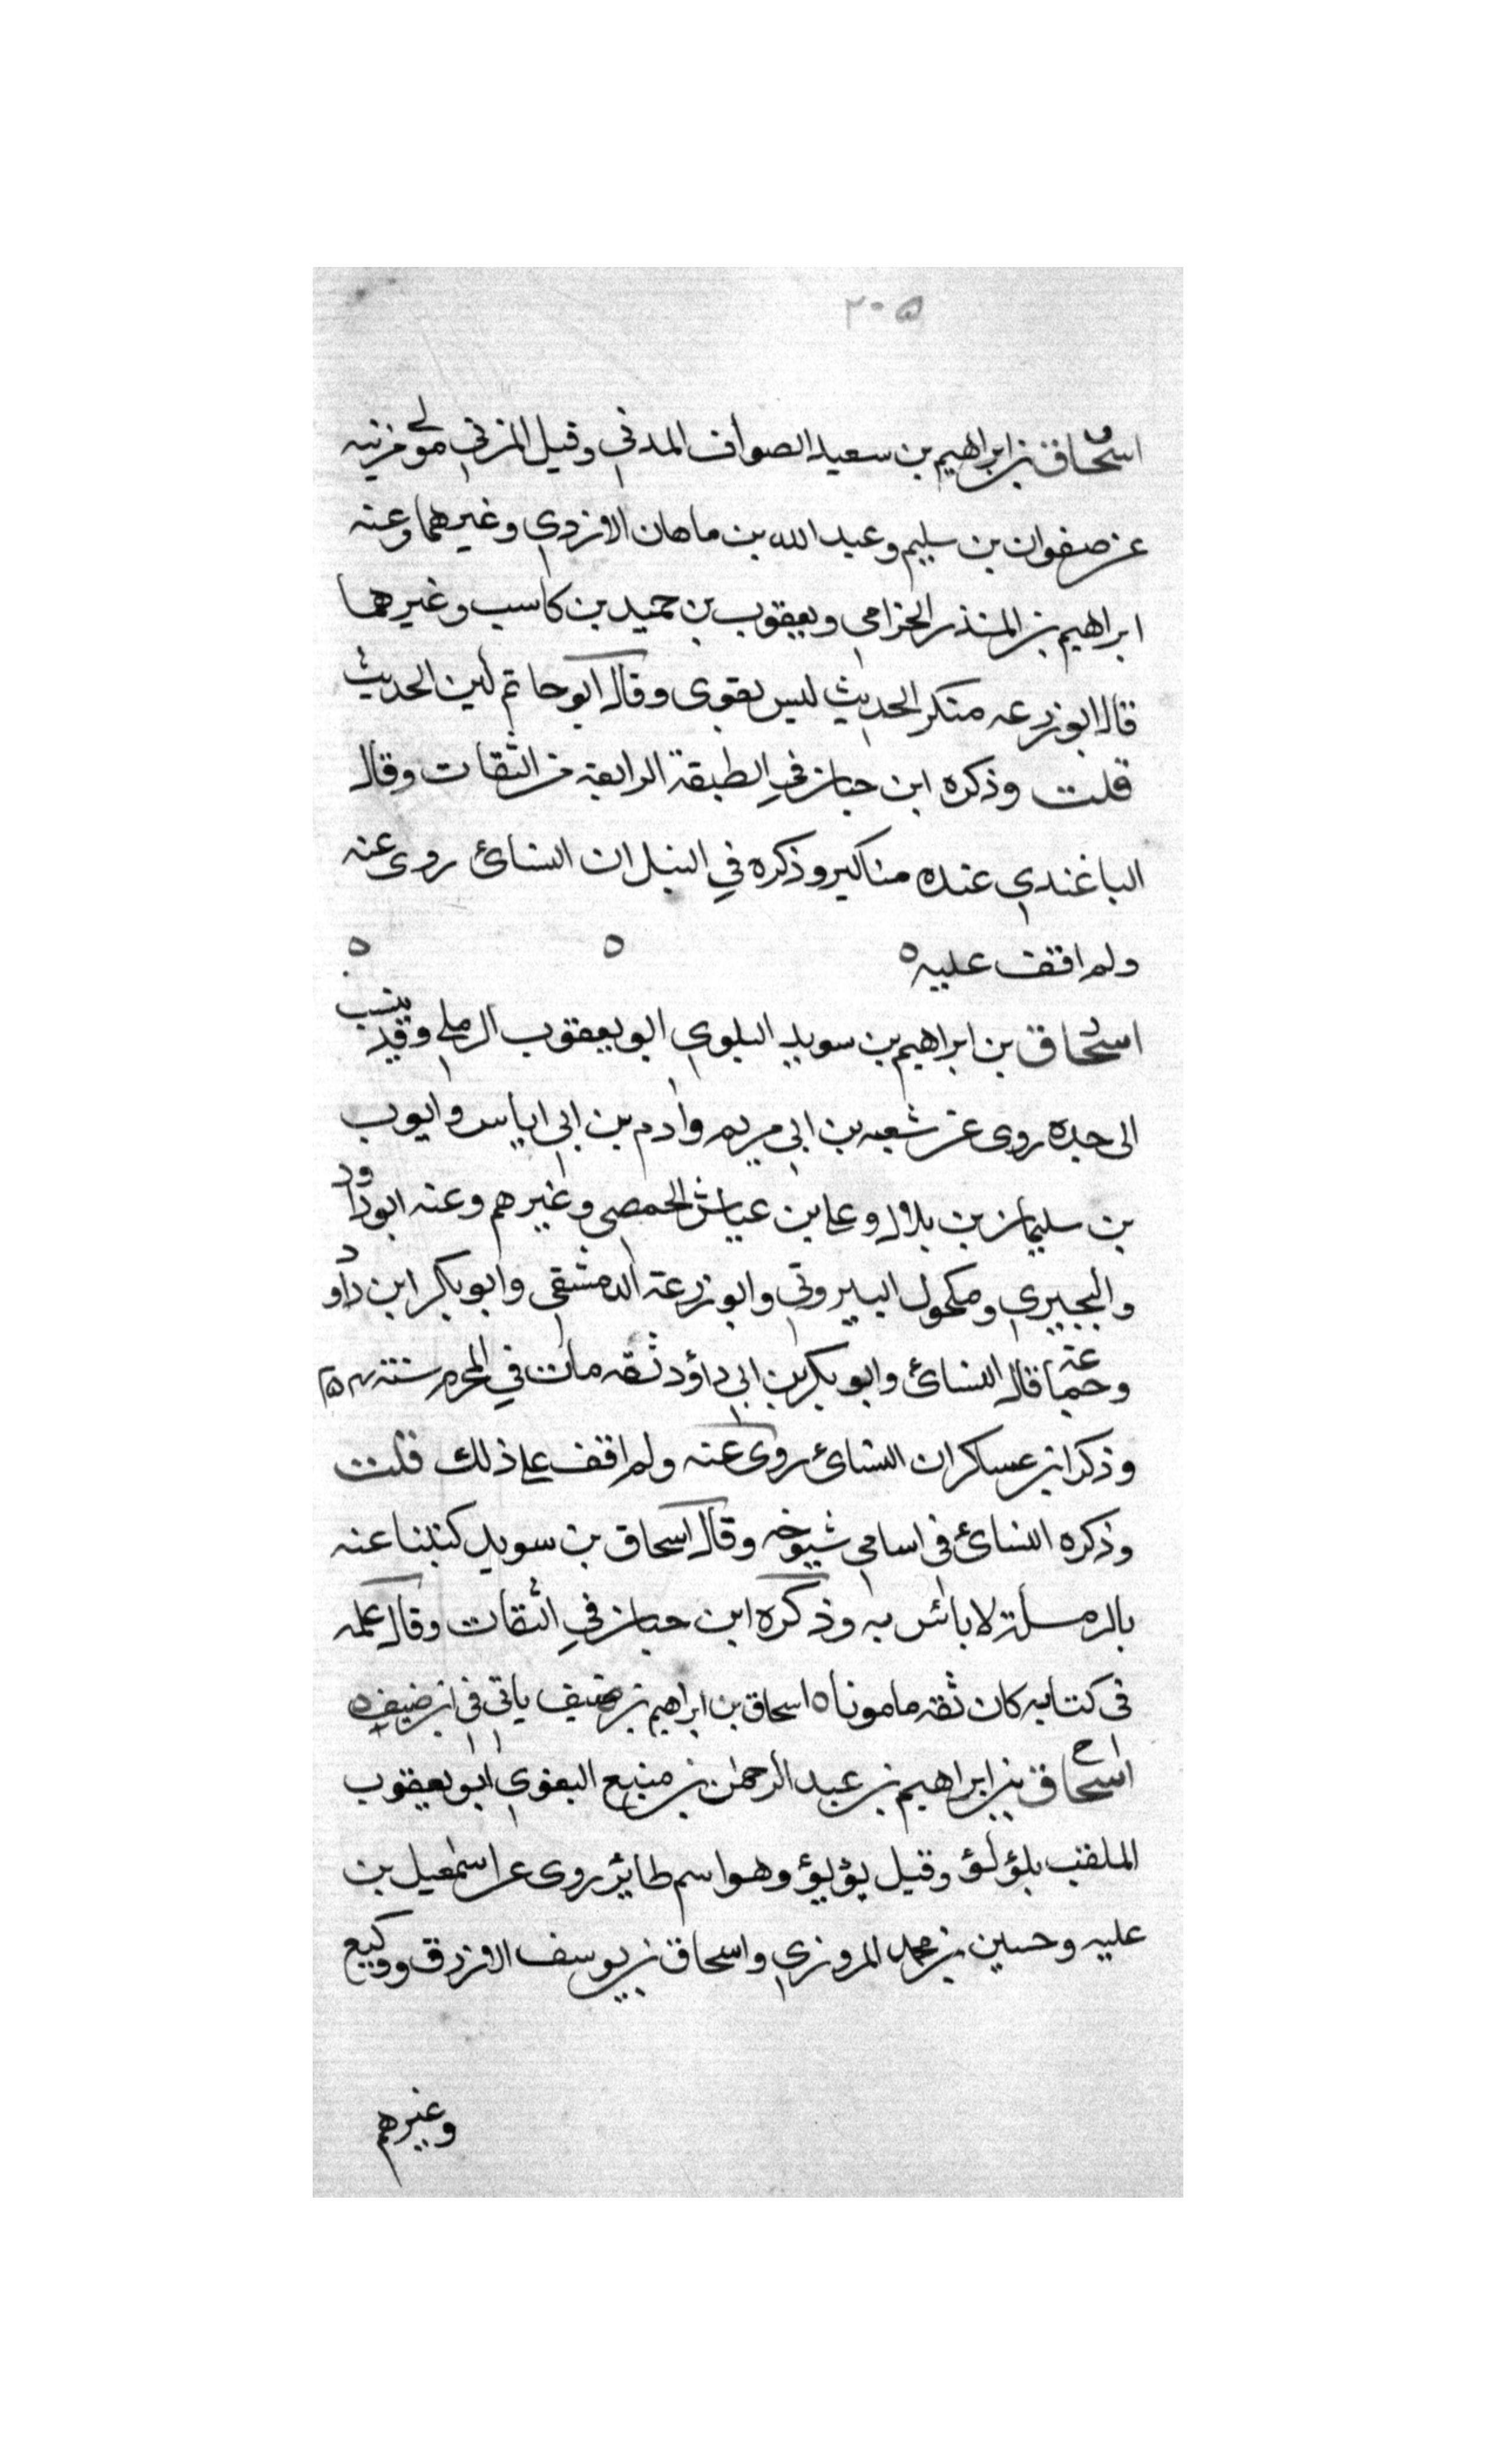 ٢٠٥
اسحاق بن ابراهيم بن سعيد الصواف المدني وقيل المزني مولى مزنيه
عن صفوان بن سليم وعبد الله بن ماهان الازدي وغيرهما وعنه
ابراهيم بن المنذر الخزامي ويعقوب بن حميد بن كاسب وغيرهما
قال ابو زرعه منكر الحديث ليس بقوى وقال ابو حاتم لين الحديث
قلت وذكره ابن حبان في الطبقة الرابعة من الثقات وقال
الباغندي عنده مناكير وذكره في النبل ان النسائ روى عنه
ولم اقف عليه ه ه ه
اسحاق بن ابراهيم بن سويد البلوي ابو يعقوب الرملي وقد ينسب
الى جده روى عن شعبه بن ابي مريم وادم بن ابي اياس وايوب
بن سليمان بن بلال وعلى بن عياش الحمصي وغيرهم وعنه ابو داود
والبجيري ومكحول البيروتي وابو زرعة الدمشقي وابو بكر ابن داود
وعنه قال النسائ وابو بكر بن ابي داؤد ثقه مات في المحرم سنته
وذكر ابن عساكر ان النسائ روى عنه ولم اقف على ذلك قلت
وذكره النسائ في اسامي شيوخه وقال اسحاق بن سويد كتبنا عنه
بالرملة لا بأس به وذكره ابن حبان في الثقات وقال مسلمه
في كتابه كان ثقه مامونا ه اسحاق بن ابراهيم بن ضيف ياتي في ابن ضيف ه
اسحاق بن ابراهيم بن عبد الرحمن بن منيع البغوي ابو يعقوب
الملقب بلؤلؤ وقيل يؤيؤ وهو اسم طاير روى عن اسمعيل بن
عليه وحسين بن محمد المروزي واسحاق بن يوسف الازرق ووكيع
وغيرهم